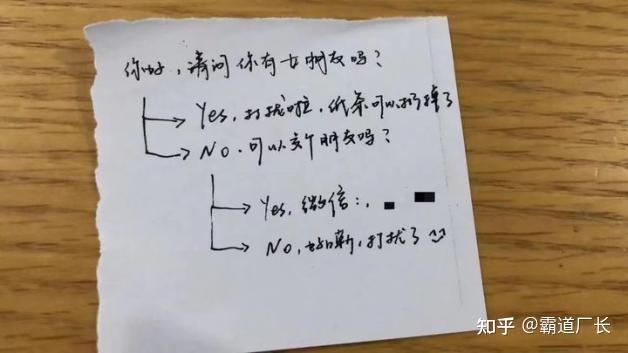 你好，请问你有女朋友吗？
Yes，打扰啦，纸条可以扔掉了
No．可以交个朋友吗？
Yes，微信：，
No，好嘞，打扰了
知乎 @霸道厂长